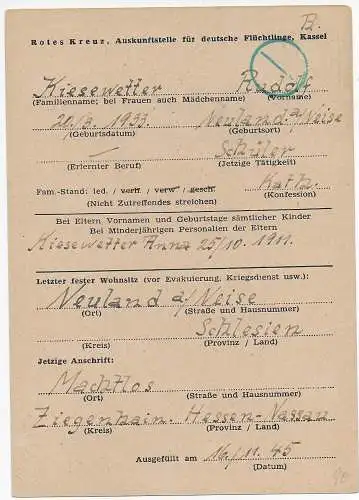 B.
Rotes Kreuz, Auskunftstelle für deutsche Flüchtlinge, Kassel
Kiesewetter Rudolf
(Familienname; bei Frauen auch Mädchenname) (Vorname)
20/3. 1933 Neuland a/Neise
(Geburtsdatum) (Geburtsort)
— Schüler
(Erlernter Beruf) (Jetzige Tätigkeit)
Fam.-Stand: led. / verh. / verw / gesch. Kath.
(Nicht Zutreffendes streichen) (Konfession)
Bei Eltern Vornamen und Geburtstage sämtlicher Kinder
Bei Minderjährigen Personalien der Eltern
Kiesewetter Anna 25/10. 1911.
Letzter fester Wohnsitz (vor Evakuierung, Kriegsdienst usw.):
Neuland a/Neise
(Ort) (Straße und Hausnummer)
Schlesien
(Kreis) (Provinz / Land)
Jetzige Anschrift:
Machtlos
(Ort) (Straße und Hausnummer)
Ziegenhain. Hessen-Nassau
(Kreis) (Provinz / Land)
Ausgefüllt am 16/11. 45
(Datum)